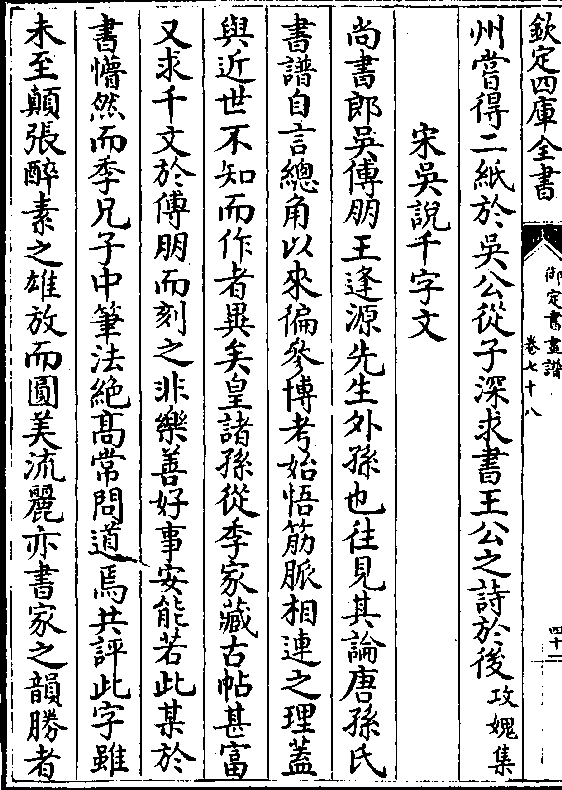 欽定四庫全書
御定書畫譜
卷七十八
四十二
州嘗得二紙於吳公從子深求書王公之詩於後攻媿集
宋吳說千字文
尚書郎吳傅朋王逢源先生外孫也往見其論唐孫氏
書譜自言總角以來徧參博考始悟筋脈相連之理蓋
與近世不知而作者異矣皇諸孫從季家藏古帖甚富
又求千文於傅朋而刻之非樂善好事安能若此某於
書懵然而季兄子中筆法絶髙常問道焉共評此字雖
未至顛張醉素之雄放而圓美流麗亦書家之韻勝者